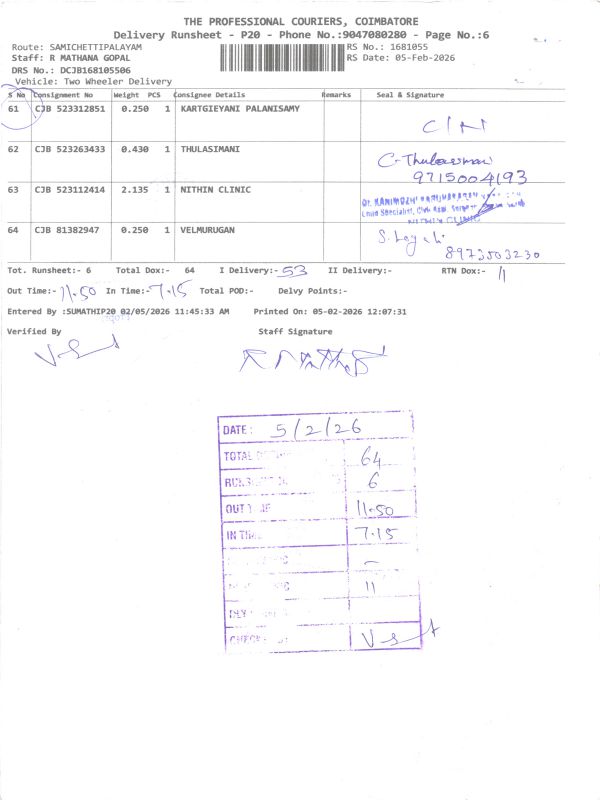 THE PROFESSIONAL COURIERS, COIMBATORE
Delivery Runsheet - P20 - Phone No.:9047080280 - Page No.:6
Route: SAMICHETTIPALAYAM RS No.: 1681055
Staff: R MATHANA GOPAL RS Date: 05-Feb-2026
DRS No.: DCJB168105506
Vehicle: Two Wheeler Delivery
S No Consignment No Weight PCS Consignee Details Remarks Seal & Signature
61 CJB 523312851 0.250 1 KARTGIEYANI PALANISAMY
62 CJB 523263433 0.430 1 THULASIMANI
9715004193
63 CJB 523112414 2.135 1 NITHIN CLINIC
64 CJB 81382947 0.250 1 VELMURUGAN
8973503230
Tot. Runsheet:- 6 Total Dox:- 64 I Delivery:- 53 II Delivery:- RTN Dox:- 11
Out Time:- 11.50 In Time:- 7.15 Total POD:- Delvy Points:-
Entered By :SUMATHIP20 02/05/2026 11:45:33 AM Printed On: 05-02-2026 12:07:31
Verified By Staff Signature
DATE: 5/2/26
TOTAL 64
6
OUT 11.50
IN 7.15
11